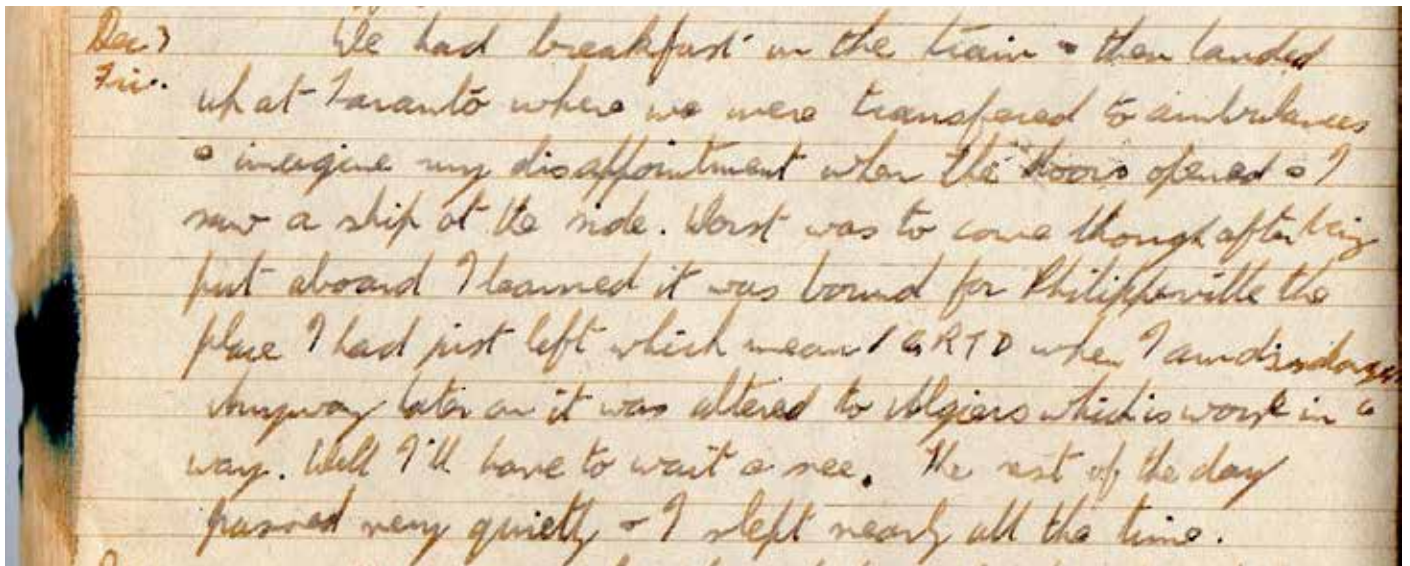 Dec 3 We had breakfast in the train & then landed
Fri. up at Taranto where we were transfered to ambulances
& imagine my disappointment when the doors opened & I
saw a ship at the side. Worst was to come though after being
put aboard I learned it was bound for Philippeville the
place I had just left which mean 1 GRTD when I am discharged
Anyway later on it was altered to Algiers which is worse in a
way. Well I'll have to wait & see. The rest of the day
passed very quietly & I slept nearly all the time.